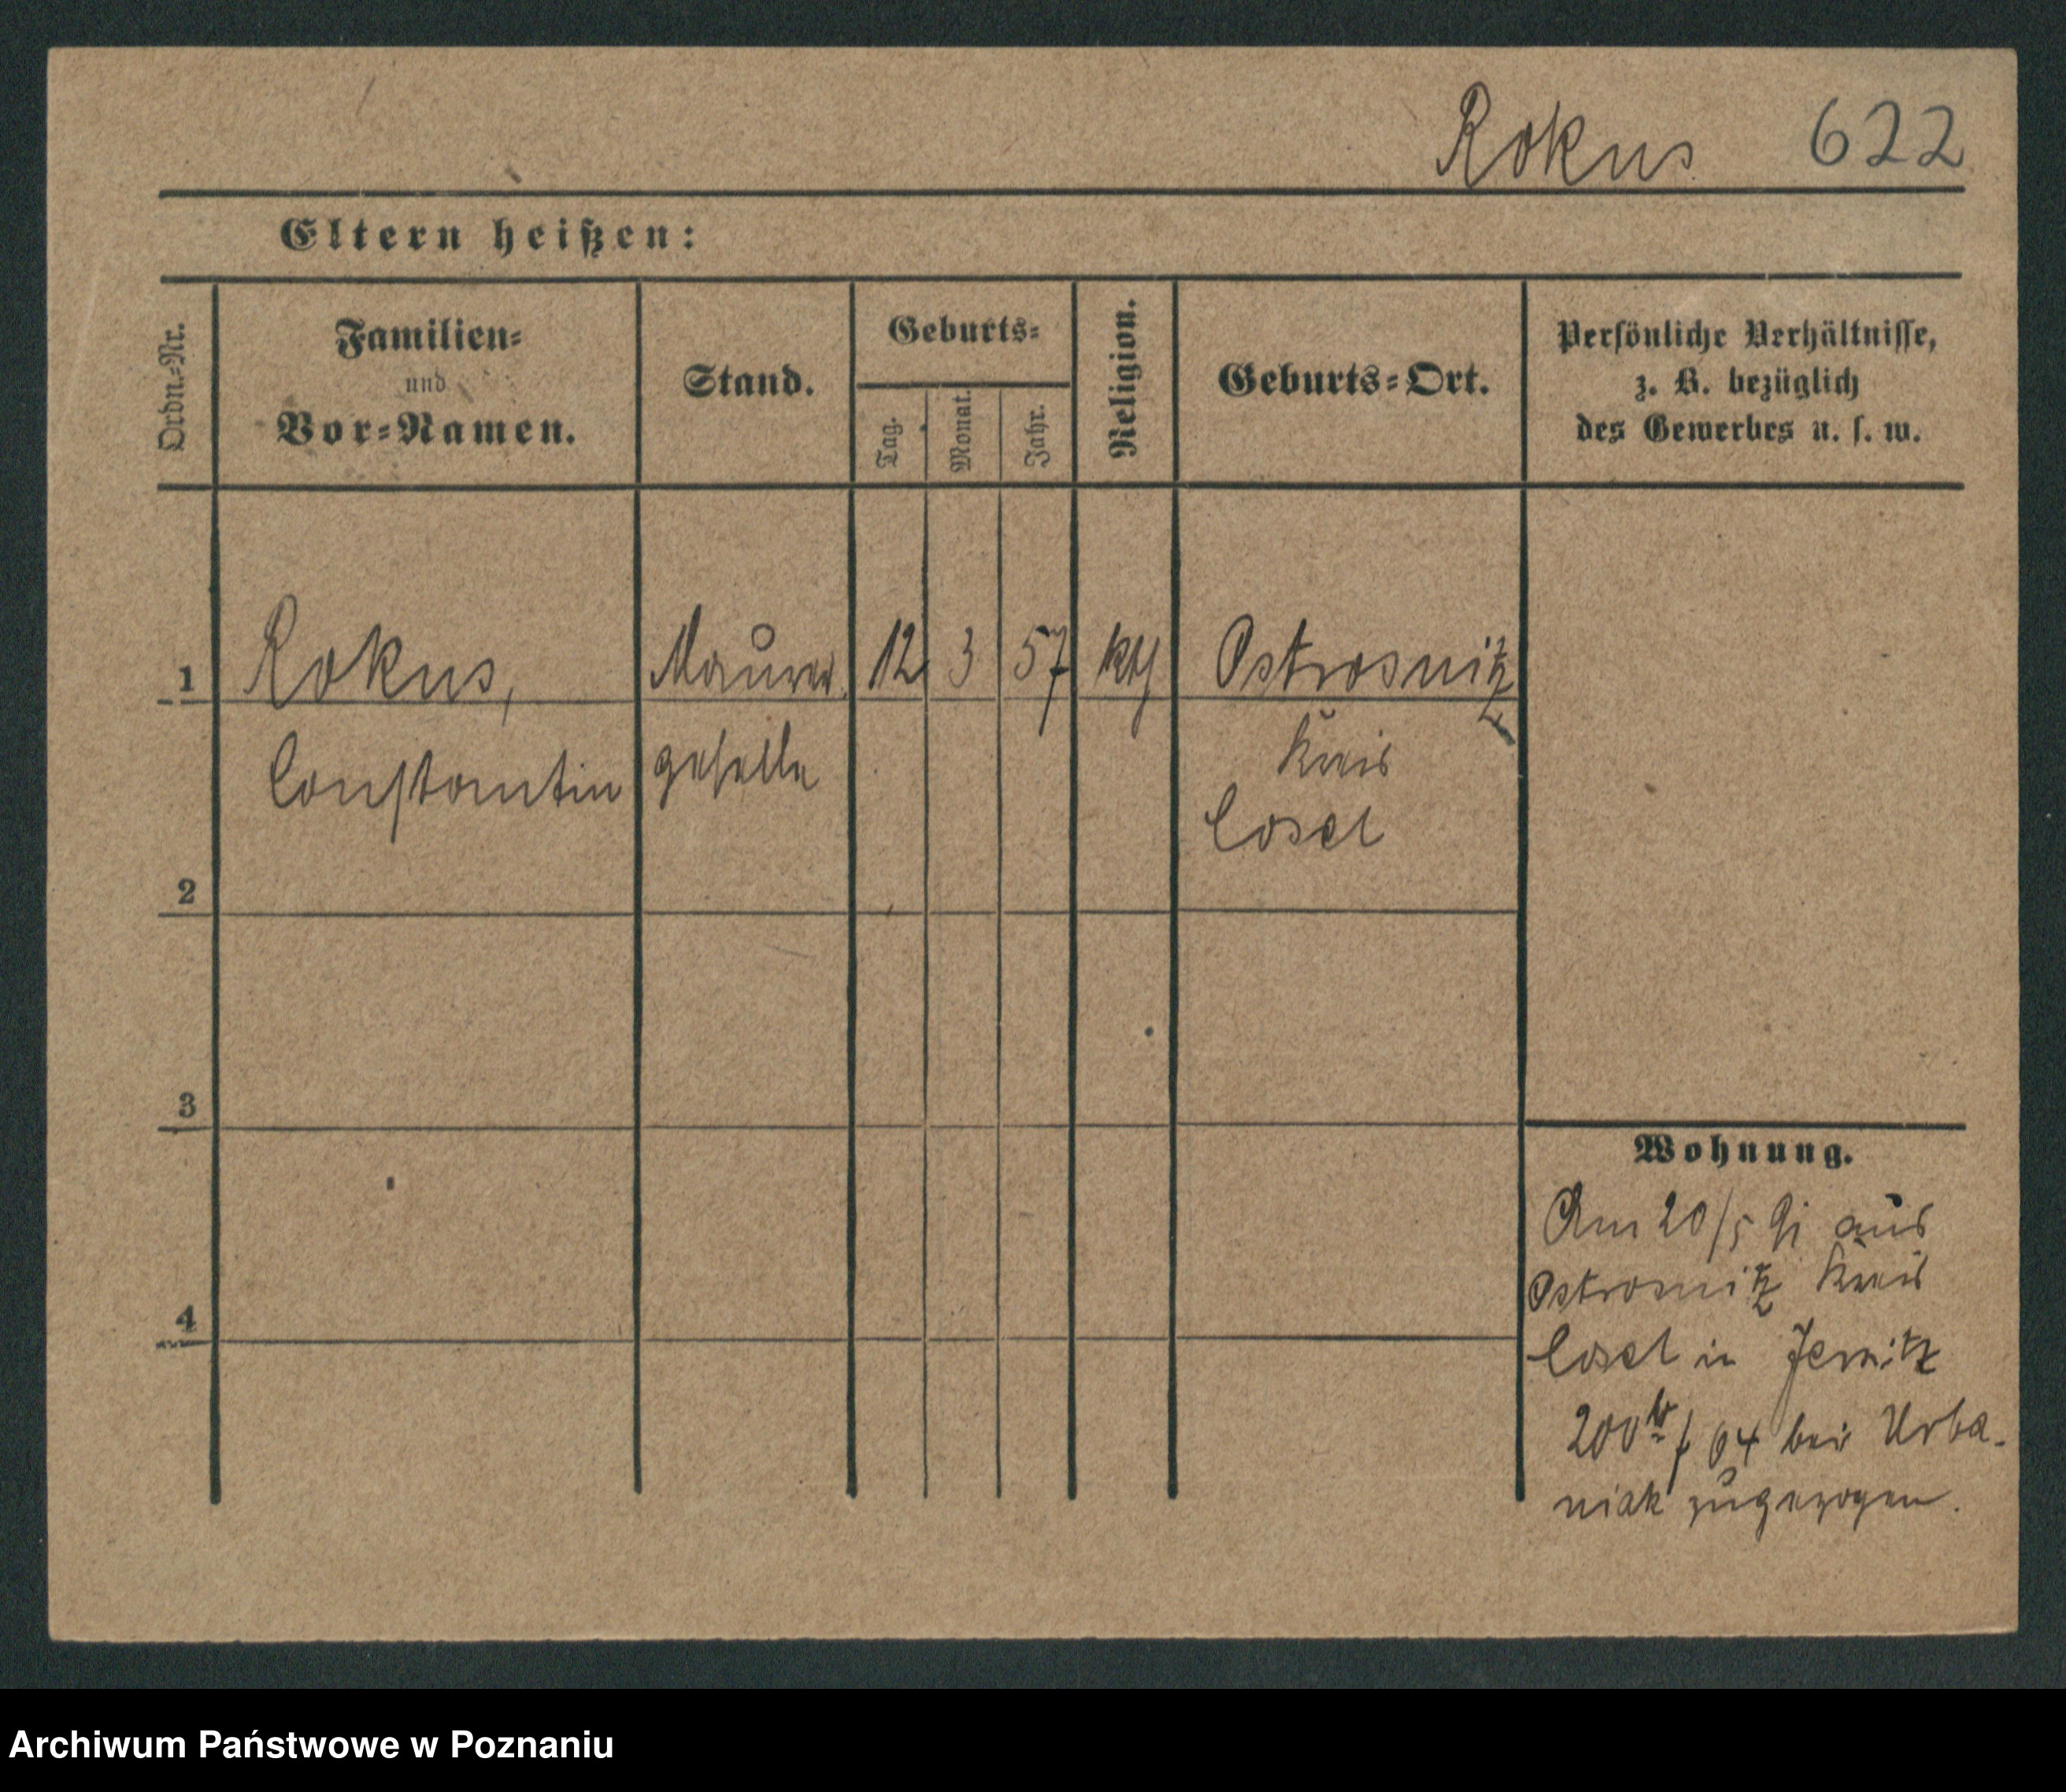 Rokus 622
Eltern heißen:
Ordn.-Nr.
Familien-
und
Vor-Namen.
Stand.
Geburts-
Tag.
Monat.
Jahr.
Religion.
Geburts-Ort.
Persönliche Verhältnisse,
z. B. bezüglich
des Gewerbes u. s. w.
1 Rokus, Maurer 12 3 57 kth Ostrosnitz
Constantin geselle Kreis
Cosel
2
3
4
Wohnung.
Am 20/5 91 aus
Ostrosnitz Kreis
Cosel in Jersitz
200 64 bei Urba-
niak zugezogen.
Archiwum Państwowe w Poznaniu